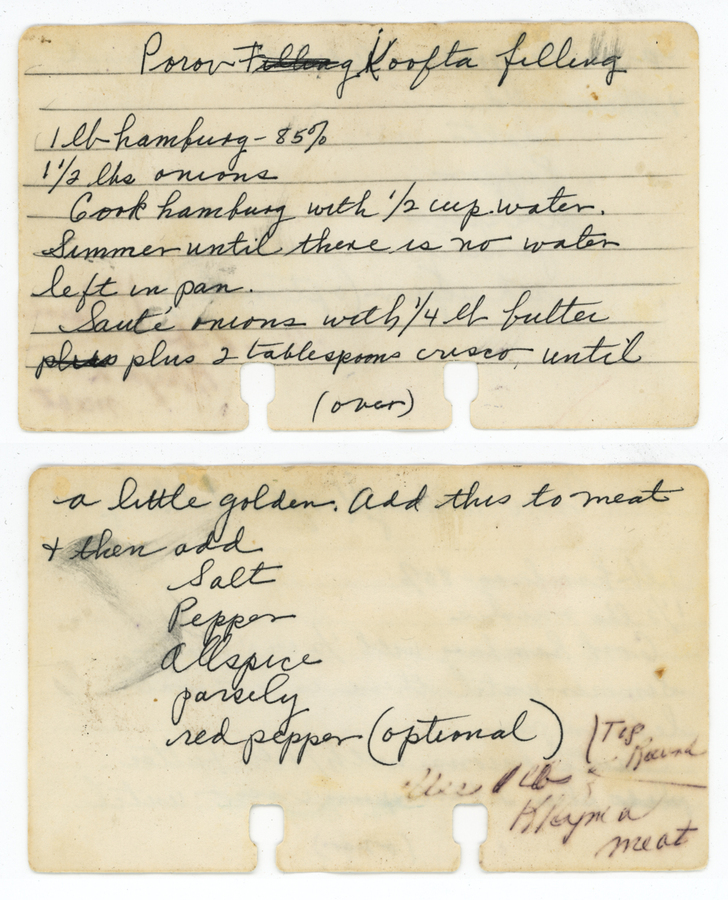 Porov Filling Koofta filling
1 lb hamburg - 85%
1 1/2 lbs onions
Cook hamburg with 1/2 cup water.
Simmer until there is no water
left in pan.
Sauté onions with 1/4 lb butter
plus plus 2 tablespoons crisco until
(over)
a little golden. Add this to meat
& then add
Salt
Pepper
Allspice
parsely
red pepper (optional)
(Top
Round
Use 1 lb
Kheyma
meat